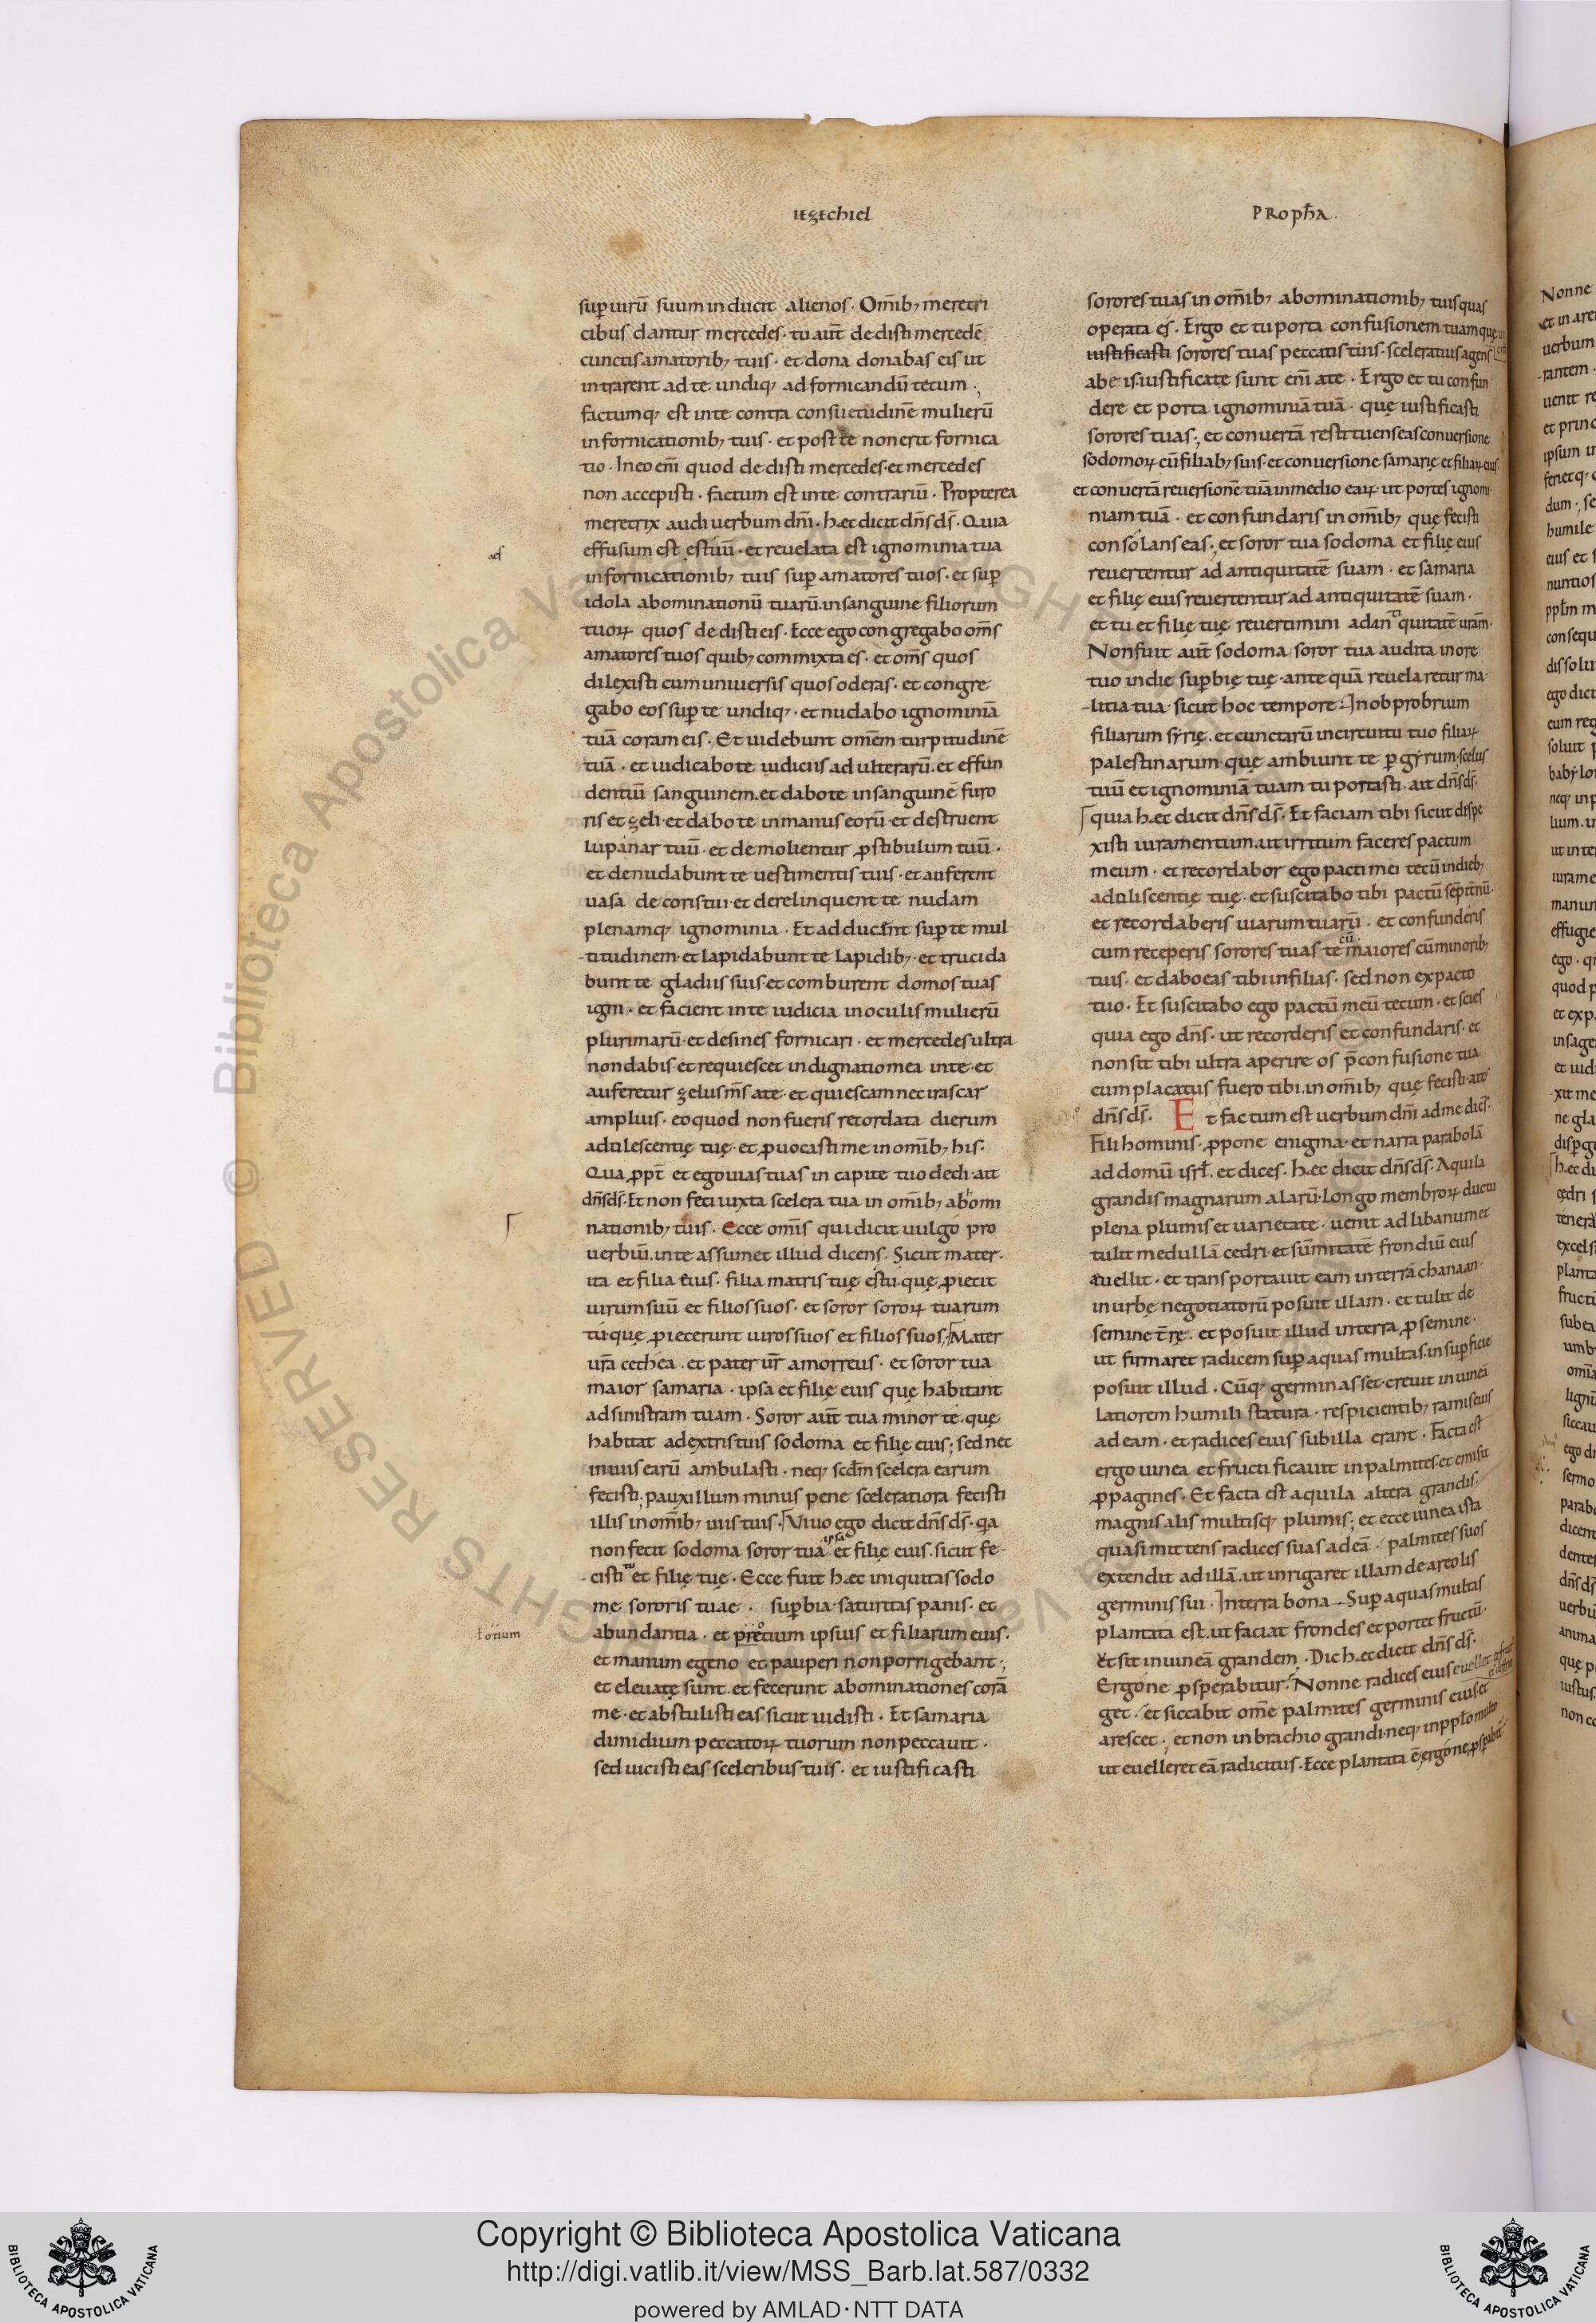 ıezechiel
Proph̄a
sup̱ uirū suum inducit alienos. Om̄ib; meretri
cibus dantur mercedes. tu aut̄ dedisti mercedē
cunctis amatorib; tuis. et dona donabas eis ut
intrarent ad te undiq; ad fornicandū tecum.
factumq; est in te contra consuetudinē mulierū
in fornicationib; tuis. et post te non erit fornica
tio. In eo eni̅ quod dedisti mercedes. et mercedes
non accepisti. factum est in te contrariū. Propterea
meretrix audi uerbum dn̄i. hęc dicit dn̄s ds̄. Quia
effusum est ęs tuū. et reuelata est ignominia tua
in fornicationib; tuis sup̱ amatores tuos. et sup̱
idola abominationū tuarū. in sanguine filiorum
tuoꝝ quos dedisti eis. Ecce ego congregabo om̄s
amatores tuos quib; commixta es. et om̄s quos
dilexisti cum uniuersis quos oderas. et congre
gabo eos sup̱ te undiq;. et nudabo ignominiā
tuā coram eis. Et uidebunt omēm turpitudinē
tuā. et iudicabo te iudiciis adulterarū. et effun
dentiū sanguinem. et dabo te in sanguinē furo
ris et zeli. et dabo te in manus eorū. et destruent
lupanar tuū. et demolientur ꝓstibulum tuū.
et denudabunt te uestimentis tuis. et auferent
uasa decoris tui. et derelinquent te nudam
plenamq; ignominia. Et adducent sup̱ te mul
titudinem. et lapidabunt te lapidib;. et trucida
bunt te gladiis suis. et comburent domos tuas
igni. et facient in te iudicia in oculis mulierū
plurimarū. et desines fornicari. et mercedes ultra
non dabis. et requiescet indignatio mea in te. et
auferetur zelus m̄s a te. et quiescam nec irascar
amplius. eo quod non fueris recordata dierum
adulescentię tuę. et ꝓuocasti me in om̄ib; his.
Qua ꝓpt̄ et ego uias tuas in capite tuo dedi. ait
dn̄s ds̄. Et non feci iuxta scelera tua in om̄ib; abomi
nationib; tuis. Ecce omīs qui dicit uulgo pro
uerbiū. in te assumet illud dicens. Sicut mater.
ita et filia eius. filia matris tuę es tu. quę ꝓiecit
uirum suū et filios suos. et soror soroꝝ tuarum
tu. quę ꝓiecerunt uiros suos et filios suos. Mater
ur̄a cethea. et pater ur̄ amorreus. et soror tua
maior samaria. ipsa et filię eius quę habitant
ad sinistram tuam. Soror aut̄ tua minor te. quę
habitat a dextris tuis sodoma et filię eius; sed nec
in uiis earū ambulasti. neq; scdm̄ scelera earum
fecisti; pauxillum minus pene sceleratiora fecisti
illis in om̄ib; uiis tuis. Viuo ego dicit dn̄s ds̄. qa
ipsa
non fecit sodoma soror tua et filię eius. sicut fe
tu
cisti et filię tuę. Ecce fuit hęc iniquitas sodo
me sororis tuae. sup̱bia. saturitas panis. et
abundantia. et pretium ipsius et filiarum eius.
et manum egeno et pauperi non porrigebant;
et eleuatę sunt. et fecerunt abominationes corā
me. et abstulisti eas sicut uidisti. Et samaria
dimidium peccatoꝝ tuorum non peccauit.
sed uicisti eas sceleribus tuis. et iustificasti
otium
sorores tuas in om̄ib; abominationib; tuis quas
operata es. Ergo et tu porta confusionem tuam quę
iustificasti sorores tuas peccatis tuis. sceleratius agens
ab eis. iustificatę sunt eni̅ a te. Ergo et tu confun
dere et porta ignominiā tuā. quę iustificasti
sorores tuas; et conuertā restituens eas conuersione
sodomoꝝ cū filiab; suis. et conuersione samarię et filiaꝝ eius.
et conuertā reuersionē tuā in medio eaꝝ. ut portes ignomi
niam tuā. et confundaris in om̄ib; quę fecisti
consolans eas; et soror tua sodoma et filię eius
reuertentur ad antiquitatē suam. et samaria
et filię eius reuertentur ad antiquitatē suam.
et tu et filię tuę reuertimini ad antiquitatē ur̄am.
Non fuit aut̄ sodoma soror tua audita in ore
tuo in die sup̱bię tuę. ante quā reuelaretur ma
litia tua. sicut hoc tempore. In obprobrium
filiarum syrię. et cunctarū in circuitu tuo filiaꝝ
palestinarum. quę ambiunt te p̱ gyrum. scelus
tuū et ignominiā tuam tu portasti. ait dn̄s ds̄.
quia hęc dicit dn̄s ds̄. Et faciam tibi sicut dispe
xisti iuramentum. ut irritum faceres pactum
meum. et recordabor ego pacti mei tecū in dieb;
aduliscentię tuę. et suscitabo tibi pactū sēpitnū.
et recordaberis uiarum tuarū. et confunderis
cū
cum receperis sorores tuas te maiores cū minorib;
tuis. et dabo eas tibi in filias. sed non ex pacto
tuo. Et suscitabo ego pactū meū tecum. et scies
quia ego dn̄s. ut recorderis et confundaris. et
non sit tibi ultra aperire os p̄ confusione tua
cum placatus fuero tibi. in om̄ib; quę fecisti. ait
dn̄s ds̄. Et factum est uerbum dn̄i ad me dices̄.
Fili hominis. ꝓpone enigma. et narra parabolā
ad domū isrl̄. et dices. hęc dicit dn̄s ds̄. Aquila
grandis magnarum alarū. longo membroꝝ ductu
plena plumis et uarietate. uenit ad libanum et
tulit medullā cedri. et sūmitatē frondiū eius
auellit. et transportauit eam in terrā chanaan.
in urbę negotiatorū posuit illam. et tulit de
semine t̄rę. et posuit illud in terra ꝓ semine.
ut firmaret radicem sup̱ aquas multas. in sup̱ficie
posuit illud. Cūq; germinasset. creuit in uineā
latiorem humili statura. respicientib; ramis eius
ad eam. et radices eius sub illa erant. Facta est
ergo uinea et fructificauit in palmites. et emisit
ꝓpagines. Et facta est aquila altera grandis.
magnis alis multisq; plumis; et ecce uinea ista
quasi mittens radices suas ad eā. palmites suos
extendit ad illā. ut inrigaret illam de areolis
germinis sui. In terra bona. Sup̱ aquas multas
plantata est. ut faciat frondes et portet fructū.
Et sit in uineā grandem. Dic hęc dicit dn̄s ds̄.
Ergone ꝓsperabitur? Nonne radices eius euellet
get. et siccabit omē palmites germinis eius et
arescet; et non in brachio grandi. neq; in ppl̄o multo
ut euelleret eā radicitus. Ecce plantata ē. ergone ꝓsp̱abit̄
Nonne
uerbum
ipsum
humile
eius et
nuntios
ego dicit
eum reg
soluit
ut inte
manum
effugie
ego. qi
quod p
et iudi
xit me
excelsi
planta
sub ea
ego
sermo
parabo
dicent
dentes
uerbū
anima
quę p
iustus
non co
© Biblioteca Apostolica Vaticana ALL RIGHTS RESERVED
Copyright © Biblioteca Apostolica Vaticana
http://digi.vatlib.it/view/MSS_Barb.lat.587/0332
powered by AMLAD·NTT DATA
BIBLIOTECA APOSTOLICA VATICANA
BIBLIOTECA APOSTOLICA VATICANA